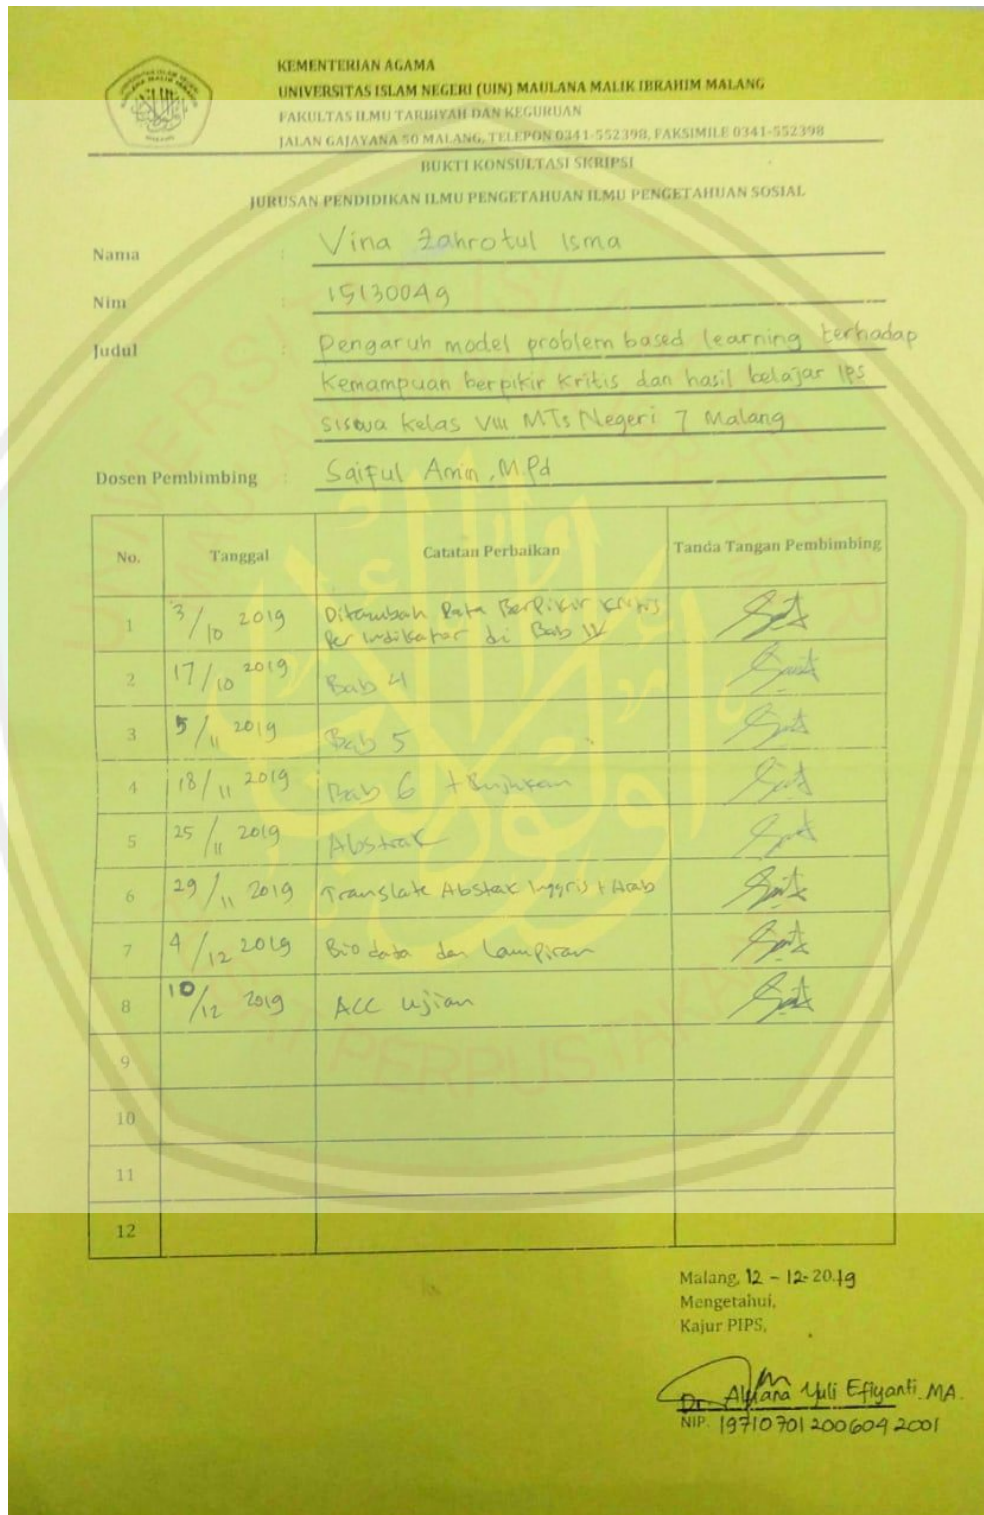 KEMENTERIAN AGAMA
UNIVERSITAS ISLAM NEGERI (UIN) MAULANA MALIK IBRAHIM MALANG
FAKULTAS ILMU TARBIYAH DAN KEGURUAN
JALAN GAJAYANA 50 MALANG, TELEPON 0341-552398, FAKSIMILE 0341-552398
BUKTI KONSULTASI SKRIPSI
JURUSAN PENDIDIKAN ILMU PENGETAHUAN ILMU PENGETAHUAN SOSIAL
Nama : Vina Zahrotul Isma
Nim : 15130049
Judul : Pengaruh model problem based learning terhadap
Kemampuan berpikir kritis dan hasil belajar IPS
siswa kelas VIII MTs Negeri 7 Malang
Dosen Pembimbing : Saiful Amin, M.Pd
No. Tanggal Catatan Perbaikan Tanda Tangan Pembimbing
1 3/10 2019 Ditambah Rata Berpikir Kritis
Per indikator di Bab IV
2 17/10 2019 Bab 4
3 5/11 2019 Bab 5
4 18/11 2019 Bab 6 + Rujukan
5 25/11 2019 Abstrak
6 29/11 2019 Translate Abstak Inggris + Arab
7 4/12 2019 Biodata dan Lampiran
8 10/12 2019 ACC Ujian
9
10
11
12
Malang, 12 - 12-2019
Mengetahui,
Kajur PIPS,
Dr. Alfiana Yuli Efiyanti MA.
NIP. 197107012006042001